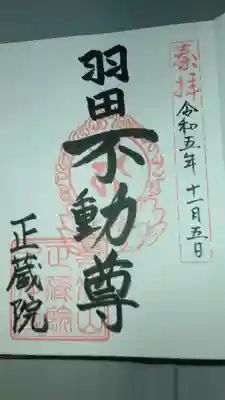 奉拝
令和五年 十一月五日
羽田不動尊
正蔵院